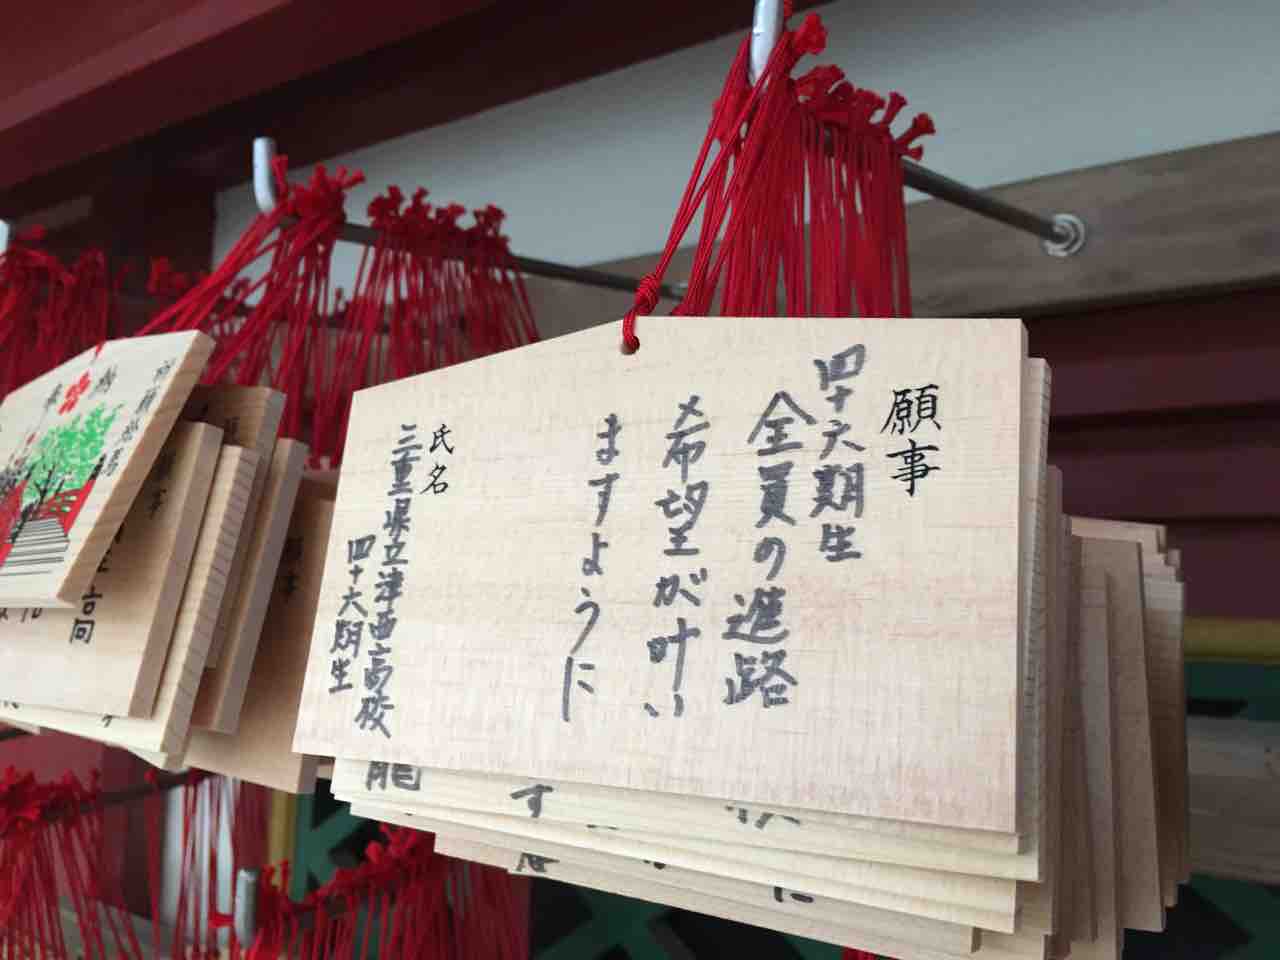 願事
四十六期生
全員の進路
希望が叶い
ますように
氏名
三重県立津西高校
四十六期生